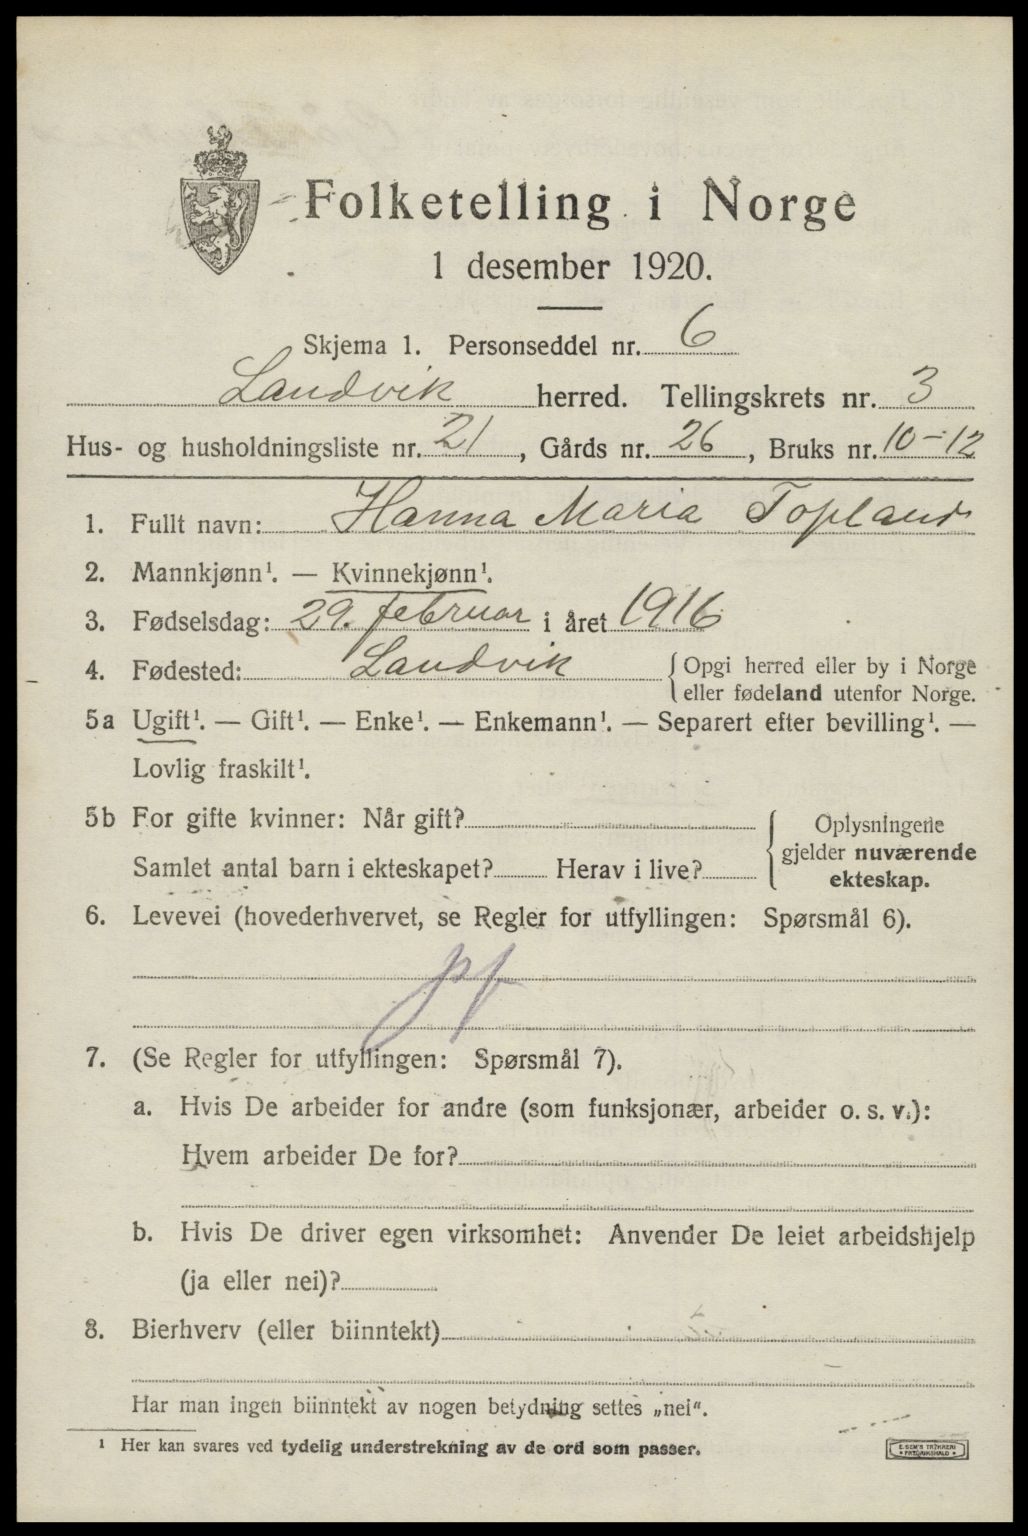 Folketelling i Norge
1 desember 1920.
Skjema 1. Personseddel nr. 6
Landvik herred. Tellingskrets nr. 3
Hus- og husholdningsliste nr. 21, Gårds nr. 26, Bruks nr. 10-12
1. Fullt navn: Hanna Maria Topland
2. Mannkjønn¹. — Kvinnekjønn¹.
3. Fødselsdag: 29. februar i året 1916
4. Fødested: Landvik {Opgi herred eller by i Norge
eller fødeland utenfor Norge.
5a Ugift¹. — Gift¹. — Enke¹. — Enkemann¹. — Separert efter bevilling¹. —
Lovlig fraskilt¹.
5b For gifte kvinner: Når gift? Oplysningene
gjelder nuværende
Samlet antal barn i ekteskapet? Herav i live?
ekteskap.
6. Levevei (hovederhvervet, se Regler for utfyllingen: Spørsmål 6).
pf
7. (Se Regler for utfyllingen: Spørsmål 7).
a. Hvis De arbeider for andre (som funksjonær, arbeider o. s. v.):
Hvem arbeider De for?
b. Hvis De driver egen virksomhet: Anvender De leiet arbeidshjelp
(ja eller nei)?
8. Bierhverv (eller biinntekt)
Har man ingen biinntekt av nogen betydning settes „nei".
¹ Her kan svares ved tydelig understrekning av de ord som passer.
E. SEM'S TRYKKERI
FREDRIKSHALD